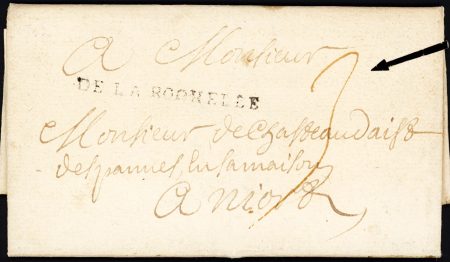 A Monsieur
DE LA ROCHELLE
Monsieur de Chasteaudaisé
despannes, en sa maison
A niort
3